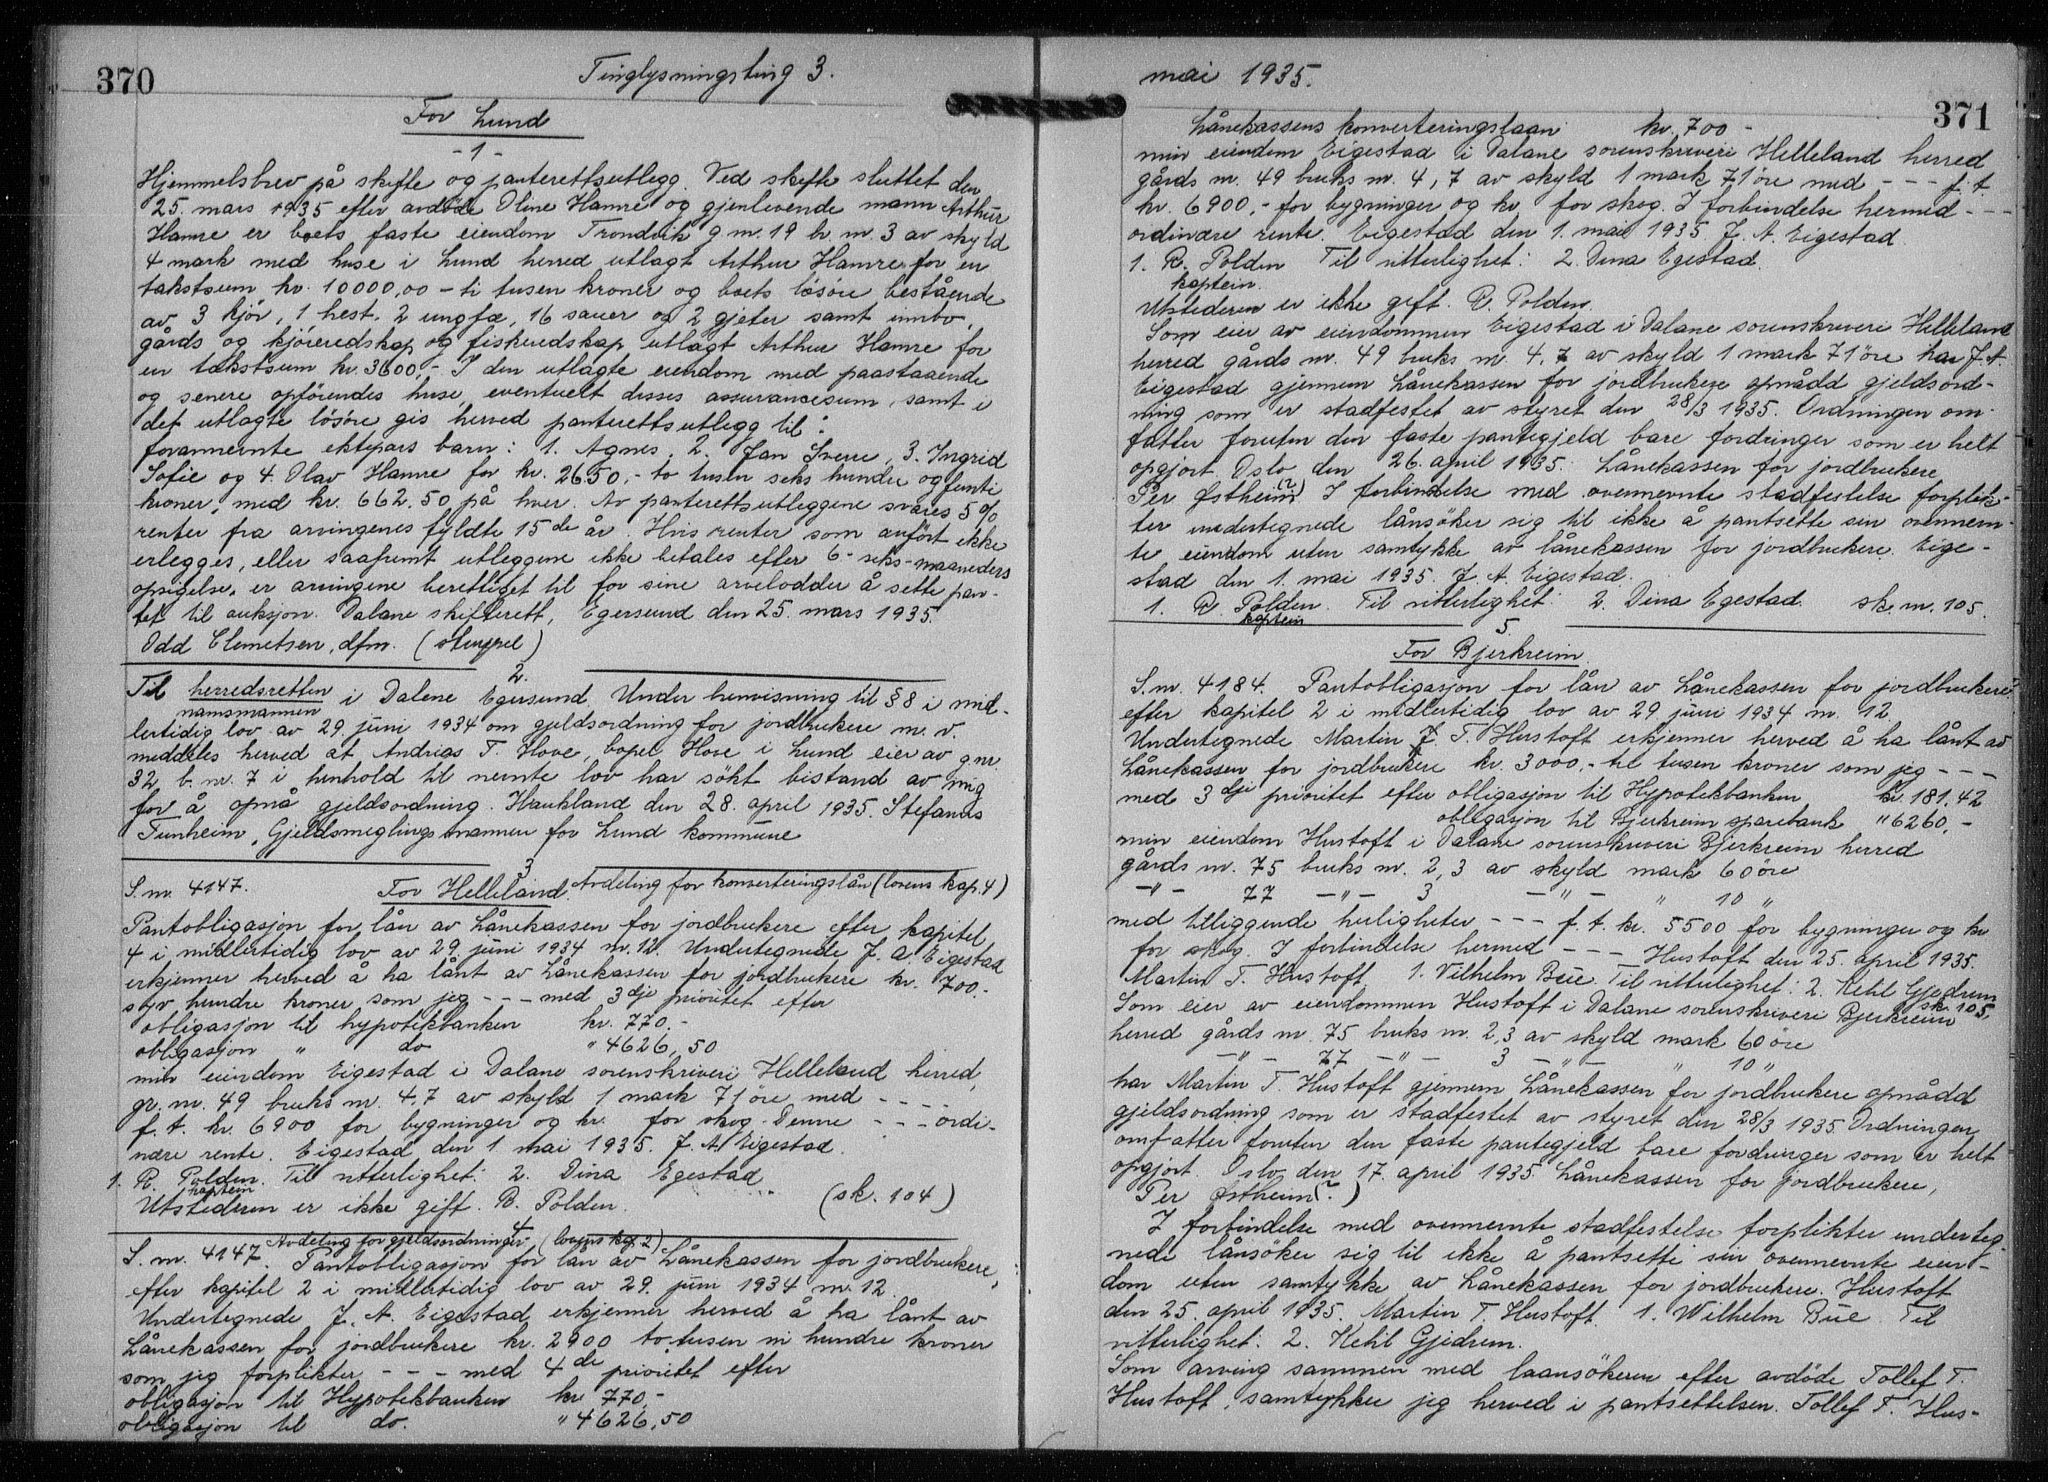 370
Tinglysningsting 3.
For Lund
-1-
Hjemmelsbrev på skifte og panterettsutlegg. Ved skifte sluttet den
25. mars 1935 efter avdøde Oline Hamre og gjenlevende mann Arthur
Hamre er boets faste eiendom Trondvik g.nr. 19 br. nr. 3 av skyld
4 mark med huse i Lund herred utlagt Arthur Hamre for en
takstsum kr. 10000,00 - ti tusen kroner og boets løsøre bestående
av 3 kjør, 1 hest, 2 ungfæ, 16 sauer og 2 gjeter samt innbo,
gårds og kjøreredskap og fiskeredskap utlagt Arthur Hamre for
en takstsum kr. 3600,- I den utlagte eiendom med paastaaende
og senere opførendes huse, eventuelt disses assurancesum, samt i
det utlagte løsøre gis herved panterettsutlegg til:
forannevnte ektepars barn: 1. Agnes, 2. Jan Sverre, 3. Ingrid
Sofie og 4. Olav Hamre for kr. 2650,- to tusen seks hundre og femti
kroner, med kr. 662.50 på hver. Av panterettsutleggene svares 5%
renter fra arvingenes fyldte 15de år. Hvis renter som anført ikke
erlegges, eller saafremt utleggene ikke betales efter 6-seks-maaneders
opsigelse, er arvingene berettiget til for sine arvelodder å sette pan-
tet til auksjon. Dalane skifterett, Egersund den 25. mars 1935.
Odd Clemetsen, dfm. (stempel)
2.
Til herredsretten i Dalene Egersund. Under henvisning til § 8 i mid-
namsmannen
lertidig lov av 29. juni 1934 om gjeldsordning for jordbrukere m. v.
meddeles herved at Andreas T. Hove, bopel Hove i Lund eier av gnr.
32 b. nr. 7 i henhold til nevnte lov har søkt bistand av mig
for å opnå gjeldsordning. Haukland den 28. april 1935. Stefanus
Tunheim, Gjeldsmeglingsmannen for Lund kommune
3
S. nr. 4147. For Helleland. Avdeling for konverteringslån (lovens kap. 4)
Pantobligasjon for lån av Lånekassen for jordbrukere efter kapitel
4 i midlertidig lov av 29. juni 1934 nr. 12. Undertegnede J. A. Eigestad
erkjenner herved å ha lånt av Lånekassen for jordbrukere kr. 700.-
syv hundre kroner, som jeg - - - med 3dje prioritet efter
obligasjon til hypotekbanken kr. 770.-
obligasjon " do " 4626,50
min eiendom Eigestad i Dalane sorenskriveri Helleland herred,
gr. nr. 49 bruks nr. 4,7 av skyld 1 mark 71 øre, med - - - -
f. t. kr. 6900 for bygninger og kr. for skog. Denne - - - ordi-
nære rente. Eigestad den 1 mai 1935. J. A. Eigestad.
1. R. Polden. Til vitterlighet: 2. Dina Egestad
kaptein
Utstederen er ikke gift. R. Polden. (sk. 104)
4
Avdeling for gjeldsordninger (lovens kap. 2)
S. nr. 4147. Pantobligasjon for lån av Lånekassen for jordbrukere,
efter kapitel 2 i midlertidig lov av 29. juni 1934 nr. 12.
Undertegnede J. A. Eigestad erkjenner herved å ha lånt av
Lånekassen for jordbrukere kr. 2900 to tusen ni hundre kroner
som jeg forplikter - - - med 4de prioritet efter
obligasjon til Hypotekbanken kr 770,-
obligasjon til do. " 4626,50
mai 1935.
371
Lånekassens konverteringslaan kr. 700 -
min eiendom Eigestad i Dalane sorenskriveri Helleland herred
gårds nr. 49 bruks nr. 4,7 av skyld 1 mark 71 øre med - - - f. t.
kr. 6900,- for bygninger og kr for skog. I forbindelse hermed - - -
ordinære rente. Eigestad den 1. mai 1935. J. A. Eigestad.
1. R. Polden Til vitterlighet: 2. Dina Egestad.
kaptein.
Utstederen er ikke gift. R. Polden.
Som eier av eiendommen Eigestad i Dalane sorenskriveri Helleland
herred gårds nr. 49 bruks nr. 4,7 av skyld 1 mark 71 øre har J. A.
Eigestad gjennem Lånekassen for jordbrukere opnådd gjeldsord-
ning som er stadfestet av styret den 28/3 1935. Ordningen om-
fatter foruten den faste pantegjeld bare fordringer som er helt
opgjort. Oslo, den 26. april 1935. Lånekassen for jordbrukere
Per Østheim (?) I forbindelse med ovennevnte stadfestelse forplik-
ter undertegnede lånsøker sig til ikke å pantsette sin ovennevn-
te eiendom uten samtykke av lånekassen for jordbrukere. Eige-
stad den 1. mai 1935. J. A. Eigestad.
1. R. Polden. Til vitterlighet: 2. Dina Egestad. sk. nr. 105.
kaptein
5.
For Bjerkreim
S. nr. 4184. Pantobligasjon for lån av Lånekassen for jordbrukere
efter kapitel 2 i midlertidig lov av 29 juni 1934 nr. 12.
Undertegnede Martin T. Hustoft erkjenner herved å ha lånt av
Lånekassen for jordbrukere kr. 3000,- tre tusen kroner som jeg - - -
med 3dje prioritet efter obligasjon til Hypotekbanken kr. 181,42
obligasjon til Bjerkreim sparebank " 6260,-
min eiendom Hustoft i Dalane sorenskriveri Bjerkreim herred
gårds nr. 75 bruks nr. 2,3 av skyld mark 60 øre
-"- 77 -"- 3 -"- " 10 "
med tilliggende herligheter - - - f. t. kr. 5500 for bygninger og kr
for skog. I forbindelse hermed - - - Hustoft den 25. april 1935.
Martin T. Hustoft. 1. Vilhelm Bue Til vitterlighet: 2. Ketil Gjedrem
sk. 105,
Som eier av eiendommen Hustoft i Dalane sorenskriveri Bjerkreim
herred gårds nr. 75 bruks nr. 2,3 av skyld mark 60 øre
-"- 77 -"- 3 -"- " 10 "
har Martin T. Hustoft gjennem Lånekassen for jordbrukere opnådd
gjeldsordning som er stadfestet av styret den 28/3 1935. Ordningen
omfatter foruten den faste pantegjeld bare fordringer som er helt
opgjort. Oslo, den 17. april 1935. Lånekassen for jordbrukere,
Per Østheim (?)
I forbindelse med ovennevnte stadfestelse forplikter underteg-
nede lånsøker sig til ikke å pantsette sin ovennevnte eien-
dom uten samtykke av Lånekassen for jordbrukere. Hustoft
den 25 april 1935. Martin T. Hustoft. 1. Wilhelm Bue. Til
vitterlighet: 2. Ketil Gjedrem.
Som arving sammen med laansøkeren efter avdøde Tollef T.
Hustoft, samtykker jeg herved i pantsettelsen. Tollef T. Hus-